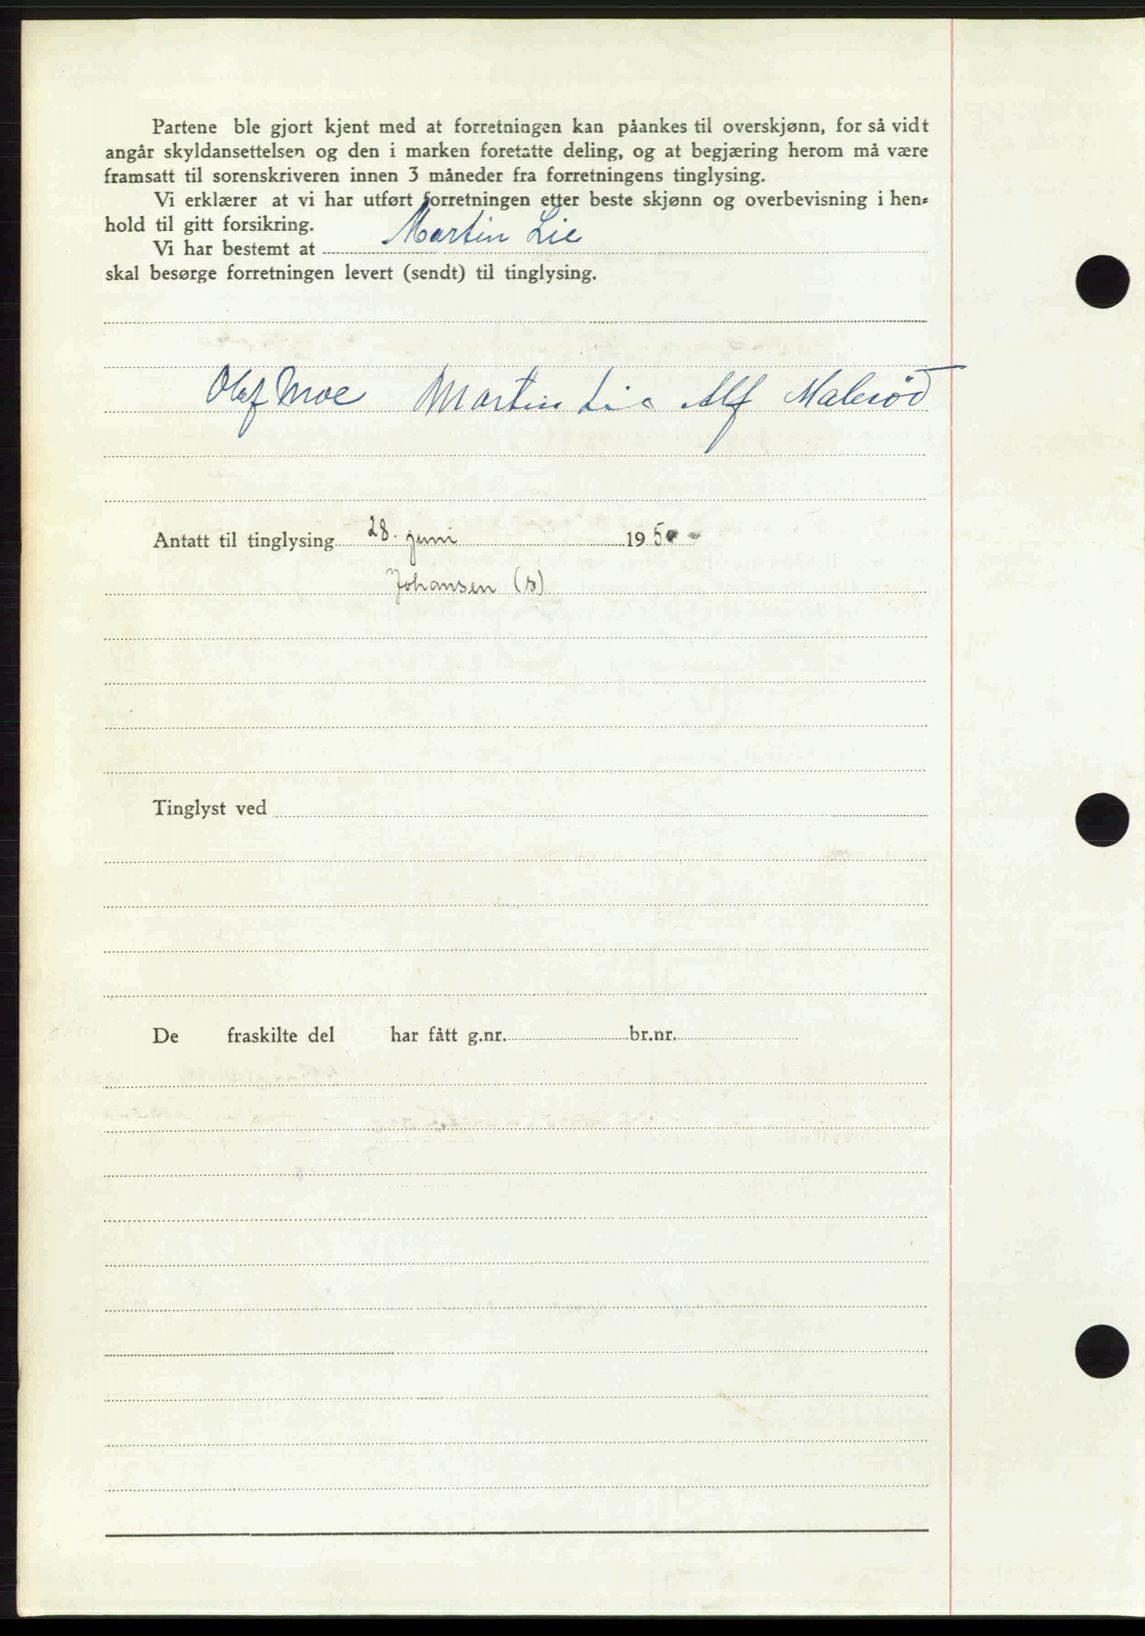 Partene ble gjort kjent med at forretningen kan påankes til overskjønn, for så vidt
angår skyldansettelsen og den i marken foretatte deling, og at begjæring herom må være
framsatt til sorenskriveren innen 3 måneder fra forretningens tinglysing.
Vi erklærer at vi har utført forretningen etter beste skjønn og overbevisning i hen-
hold til gitt forsikring.
Vi har bestemt at Martin Lie
skal besørge forretningen levert (sendt) til tinglysing.
Olaf Moe Martin Lie Alf Malerød
Antatt til tinglysing 28. juni 1950
Johansen (s)
Tinglyst ved
De fraskilte del har fått g.nr. br.nr.